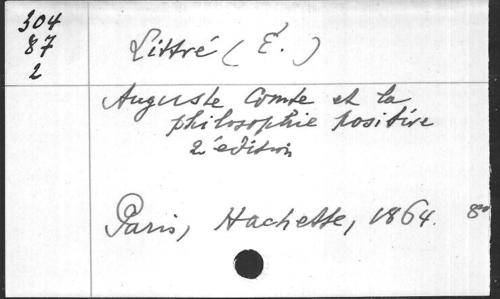 304
87
2
Littré (É.)
Auguste Comte et la
philosophie positive
2e édition
Paris, Hachette, 1864. 8°